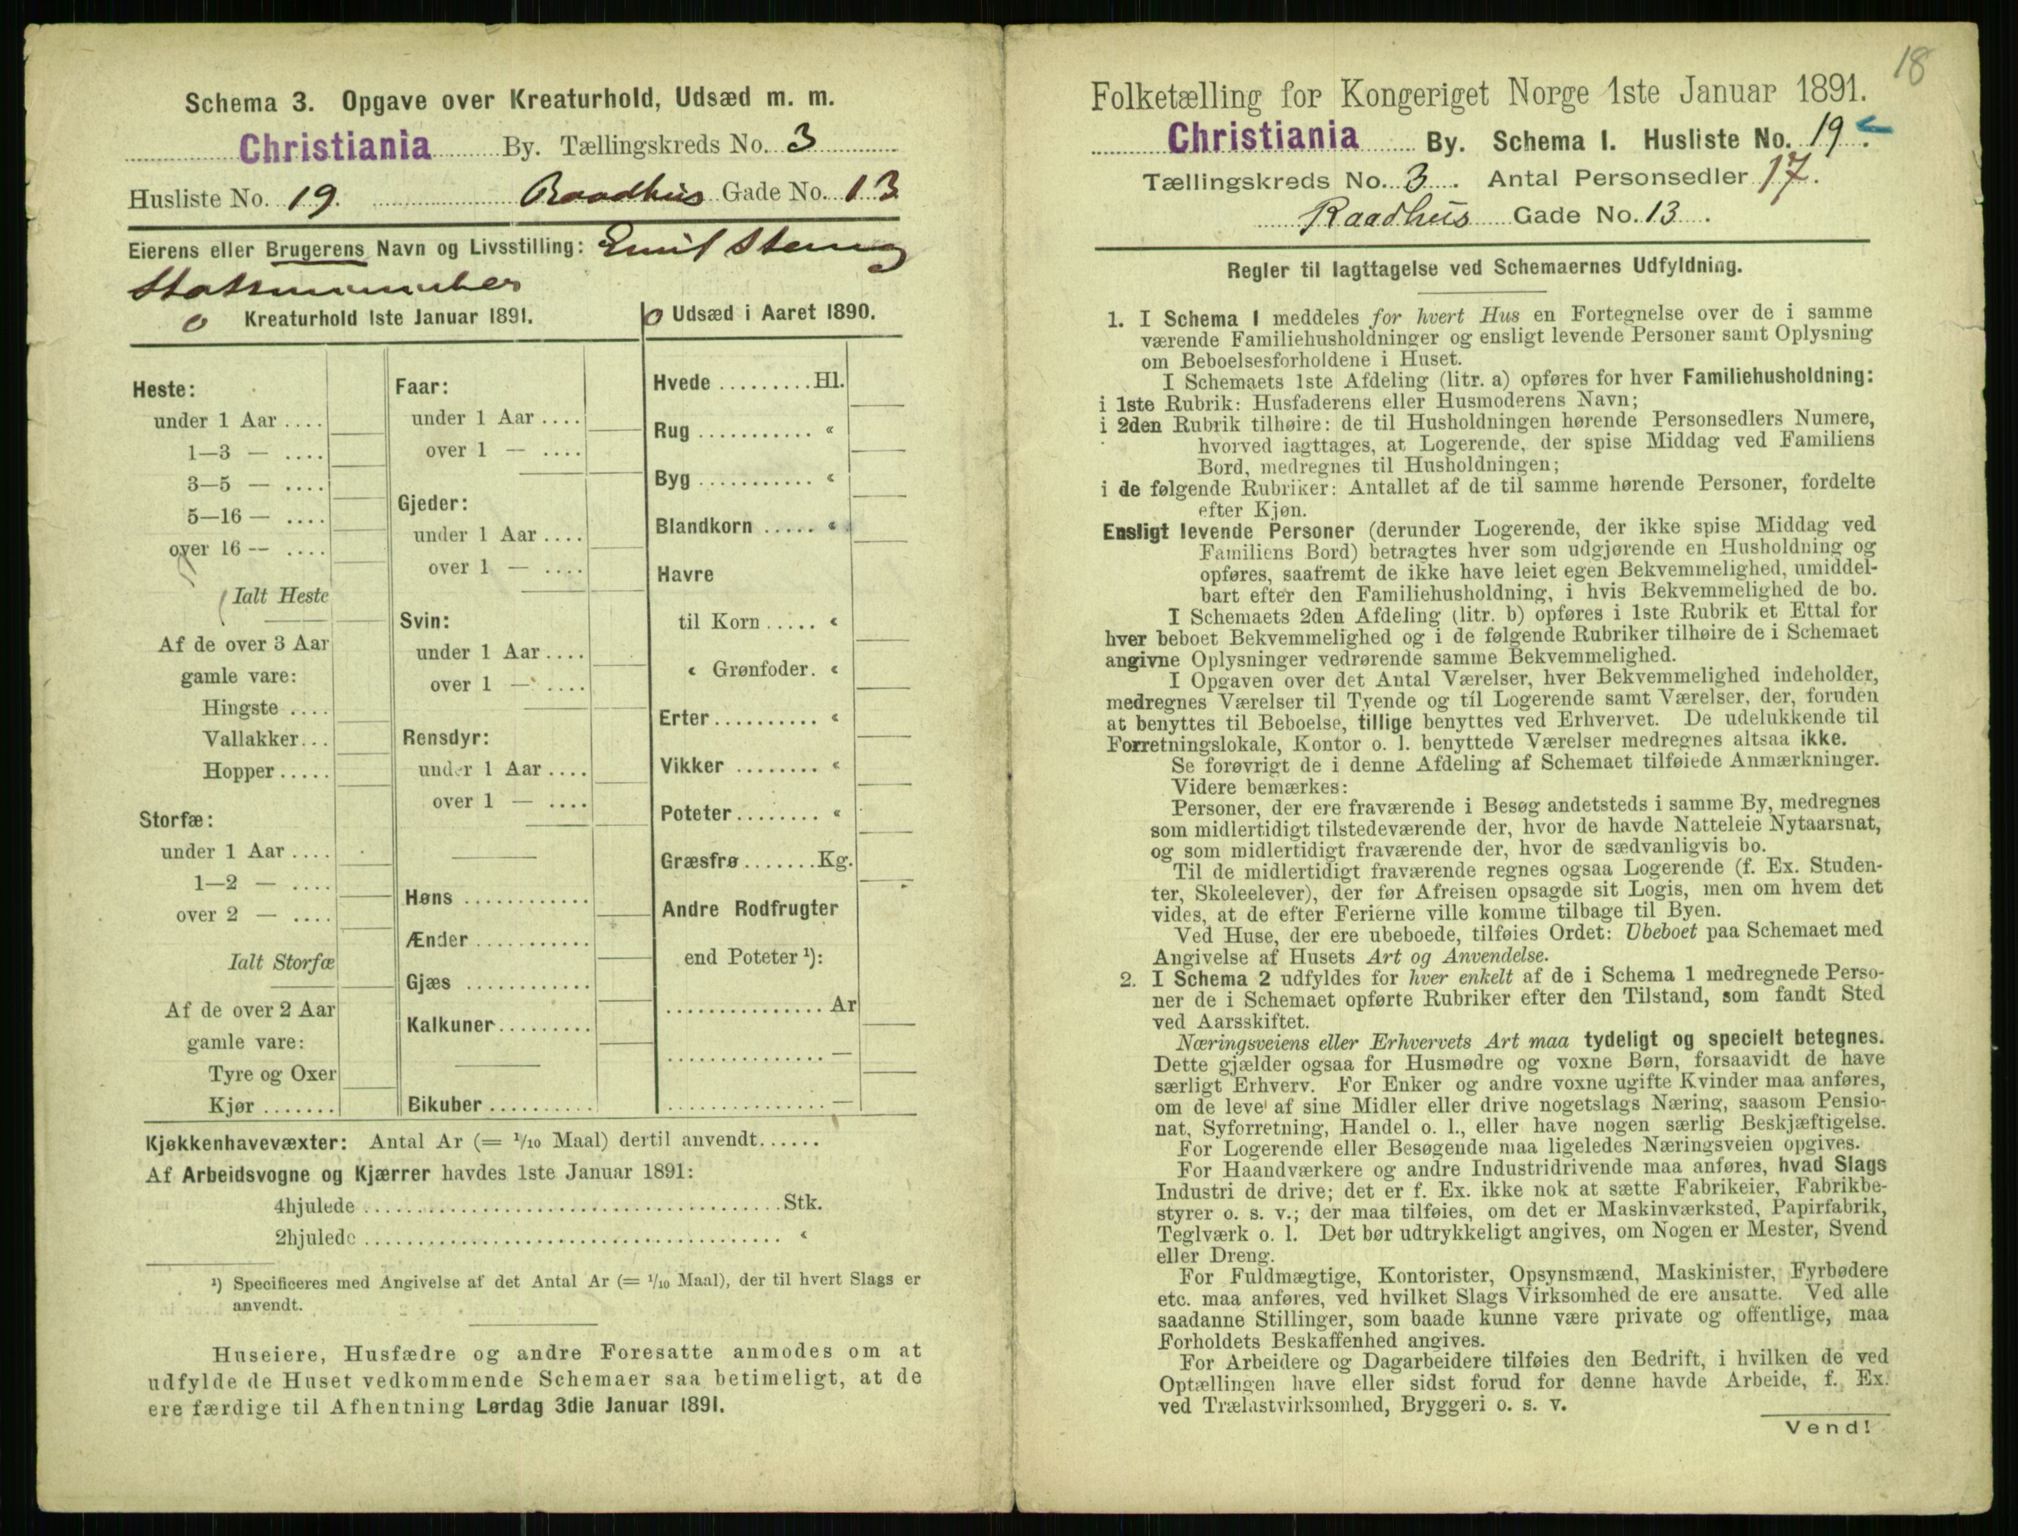 Schema 3. Opgave over Kreaturhold, Udsæd m. m.
Christiania By. Tællingskreds No. 3
Husliste No. 19. Raadhus Gade No. 13
Eierens eller Brugerens Navn og Livsstilling: Emil Stang
Statsminister
0 Kreaturhold 1ste Januar 1891.
0 Udsæd i Aaret 1890.
Heste:
under 1 Aar ....
1—3 — ....
3—5 — ....
5—16 — ....
over 16 — ....
Ialt Heste
Af de over 3 Aar
gamle vare:
Hingste ....
Vallakker...
Hopper.....
Storfæ:
under 1 Aar ....
1—2 — ....
over 2 — ....
Ialt Storfæ
Af de over 2 Aar
gamle vare:
Tyre og Oxer
Kjør .......
Faar:
under 1 Aar ....
over 1 — ....
Gjeder:
under 1 Aar ....
over 1 — ....
Svin:
under 1 Aar ....
over 1 — ....
Rensdyr:
under 1 Aar ....
over 1 — ....
Høns ............
Ænder ...........
Gjæs ............
Kalkuner.........
Bikuber ..........
Hvede .........Hl.
Rug ........... «
Byg ........... «
Blandkorn ..... «
Havre
til Korn ..... «
« Grønfoder. «
Erter.......... «
Vikker ........ «
Poteter........ «
Græsfrø.......Kg.
Andre Rodfrugter
end Poteter ¹):
............... Ar
............... —
............... —
Kjøkkenhavevæxter: Antal Ar (= 1/10 Maal) dertil anvendt......
Af Arbeidsvogne og Kjærrer havdes 1ste Januar 1891:
4hjulede ........................................Stk.
2hjulede ........................................ «
¹) Specificeres med Angivelse af det Antal Ar (= 1/10 Maal), der til hvert Slags er
anvendt.
Huseiere, Husfædre og andre Foresatte anmodes om at
udfylde de Huset vedkommende Schemaer saa betimeligt, at de
ere færdige til Afhentning Lørdag 3die Januar 1891.
18
Folketælling for Kongeriget Norge 1ste Januar 1891.
Christiania By. Schema I. Husliste No. 19.
Tællingskreds No. 3. Antal Personsedler 17.
Raadhus Gade No. 13.
Regler til Iagttagelse ved Schemaernes Udfyldning.
1. I Schema 1 meddeles for hvert Hus en Fortegnelse over de i samme
værende Familiehusholdninger og ensligt levende Personer samt Oplysning
om Beboelsesforholdene i Huset.
I Schemaets 1ste Afdeling (litr. a) opføres for hver Familiehusholdning:
i 1ste Rubrik: Husfaderens eller Husmoderens Navn;
i 2den Rubrik tilhøire: de til Husholdningen hørende Personsedlers Numere,
hvorved iagttages, at Logerende, der spise Middag ved Familiens
Bord, medregnes til Husholdningen;
i de følgende Rubriker: Antallet af de til samme hørende Personer, fordelte
efter Kjøn.
Ensligt levende Personer (derunder Logerende, der ikke spise Middag ved
Familiens Bord) betragtes hver som udgjørende en Husholdning og
opføres, saafremt de ikke have leiet egen Bekvemmelighed, umiddel-
bart efter den Familiehusholdning, i hvis Bekvemmelighed de bo.
I Schemaets 2den Afdeling (litr. b) opføres i 1ste Rubrik et Ettal for
hver beboet Bekvemmelighed og i de følgende Rubriker tilhøire de i Schemaet
angivne Oplysninger vedrørende samme Bekvemmelighed.
I Opgaven over det Antal Værelser, hver Bekvemmelighed indeholder,
medregnes Værelser til Tyende og til Logerende samt Værelser, der, foruden
at benyttes til Beboelse, tillige benyttes ved Erhvervet. De udelukkende til
Forretningslokale, Kontor o. l. benyttede Værelser medregnes altsaa ikke.
Se forøvrigt de i denne Afdeling af Schemaet tilføiede Anmærkninger.
Videre bemærkes:
Personer, der ere fraværende i Besøg andetsteds i samme By, medregnes
som midlertidigt tilstedeværende der, hvor de havde Natteleie Nytaarsnat,
og som midlertidigt fraværende der, hvor de sædvanligvis bo.
Til de midlertidigt fraværende regnes ogsaa Logerende (f. Ex. Studen-
ter, Skoleelever), der før Afreisen opsagde sit Logis, men om hvem det
vides, at de efter Ferierne ville komme tilbage til Byen.
Ved Huse, der ere ubeboede, tilføies Ordet: Ubeboet paa Schemaet med
Angivelse af Husets Art og Anvendelse.
2. I Schema 2 udfyldes for hver enkelt af de i Schema 1 medregnede Perso-
ner de i Schemaet opførte Rubriker efter den Tilstand, som fandt Sted
ved Aarsskiftet.
Næringsveiens eller Erhvervets Art maa tydeligt og specielt betegnes.
Dette gjælder ogsaa for Husmødre og voxne Børn, forsaavidt de have
særligt Erhverv. For Enker og andre voxne ugifte Kvinder maa anføres,
om de leve af sine Midler eller drive nogetslags Næring, saasom Pensio-
nat, Syforretning, Handel o. l., eller have nogen særlig Beskjæftigelse.
For Logerende eller Besøgende maa ligeledes Næringsveien opgives.
For Haandværkere og andre Industridrivende maa anføres, hvad Slags
Industri de drive; det er f. Ex. ikke nok at sætte Fabrikeier, Fabrikbe-
styrer o. s. v.; der maa tilføies, om det er Maskinværksted, Papirfabrik,
Teglværk o. l. Det bør udtrykkeligt angives, om Nogen er Mester, Svend
eller Dreng.
For Fuldmægtige, Kontorister, Opsynsmænd, Maskinister, Fyrbødere
etc. maa anføres, ved hvilket Slags Virksomhed de ere ansatte. Ved alle
saadanne Stillinger, som baade kunne være private og offentlige, maa
Forholdets Beskaffenhed angives.
For Arbeidere og Dagarbeidere tilføies den Bedrift, i hvilken de ved
Optællingen have eller sidst forud for denne havde Arbeide, f. Ex.
ved Trælastvirksomhed, Bryggeri o. s. v.
Vend!